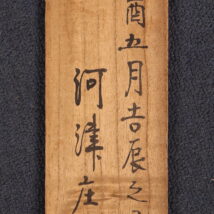 酉五月吉辰之
河津庄